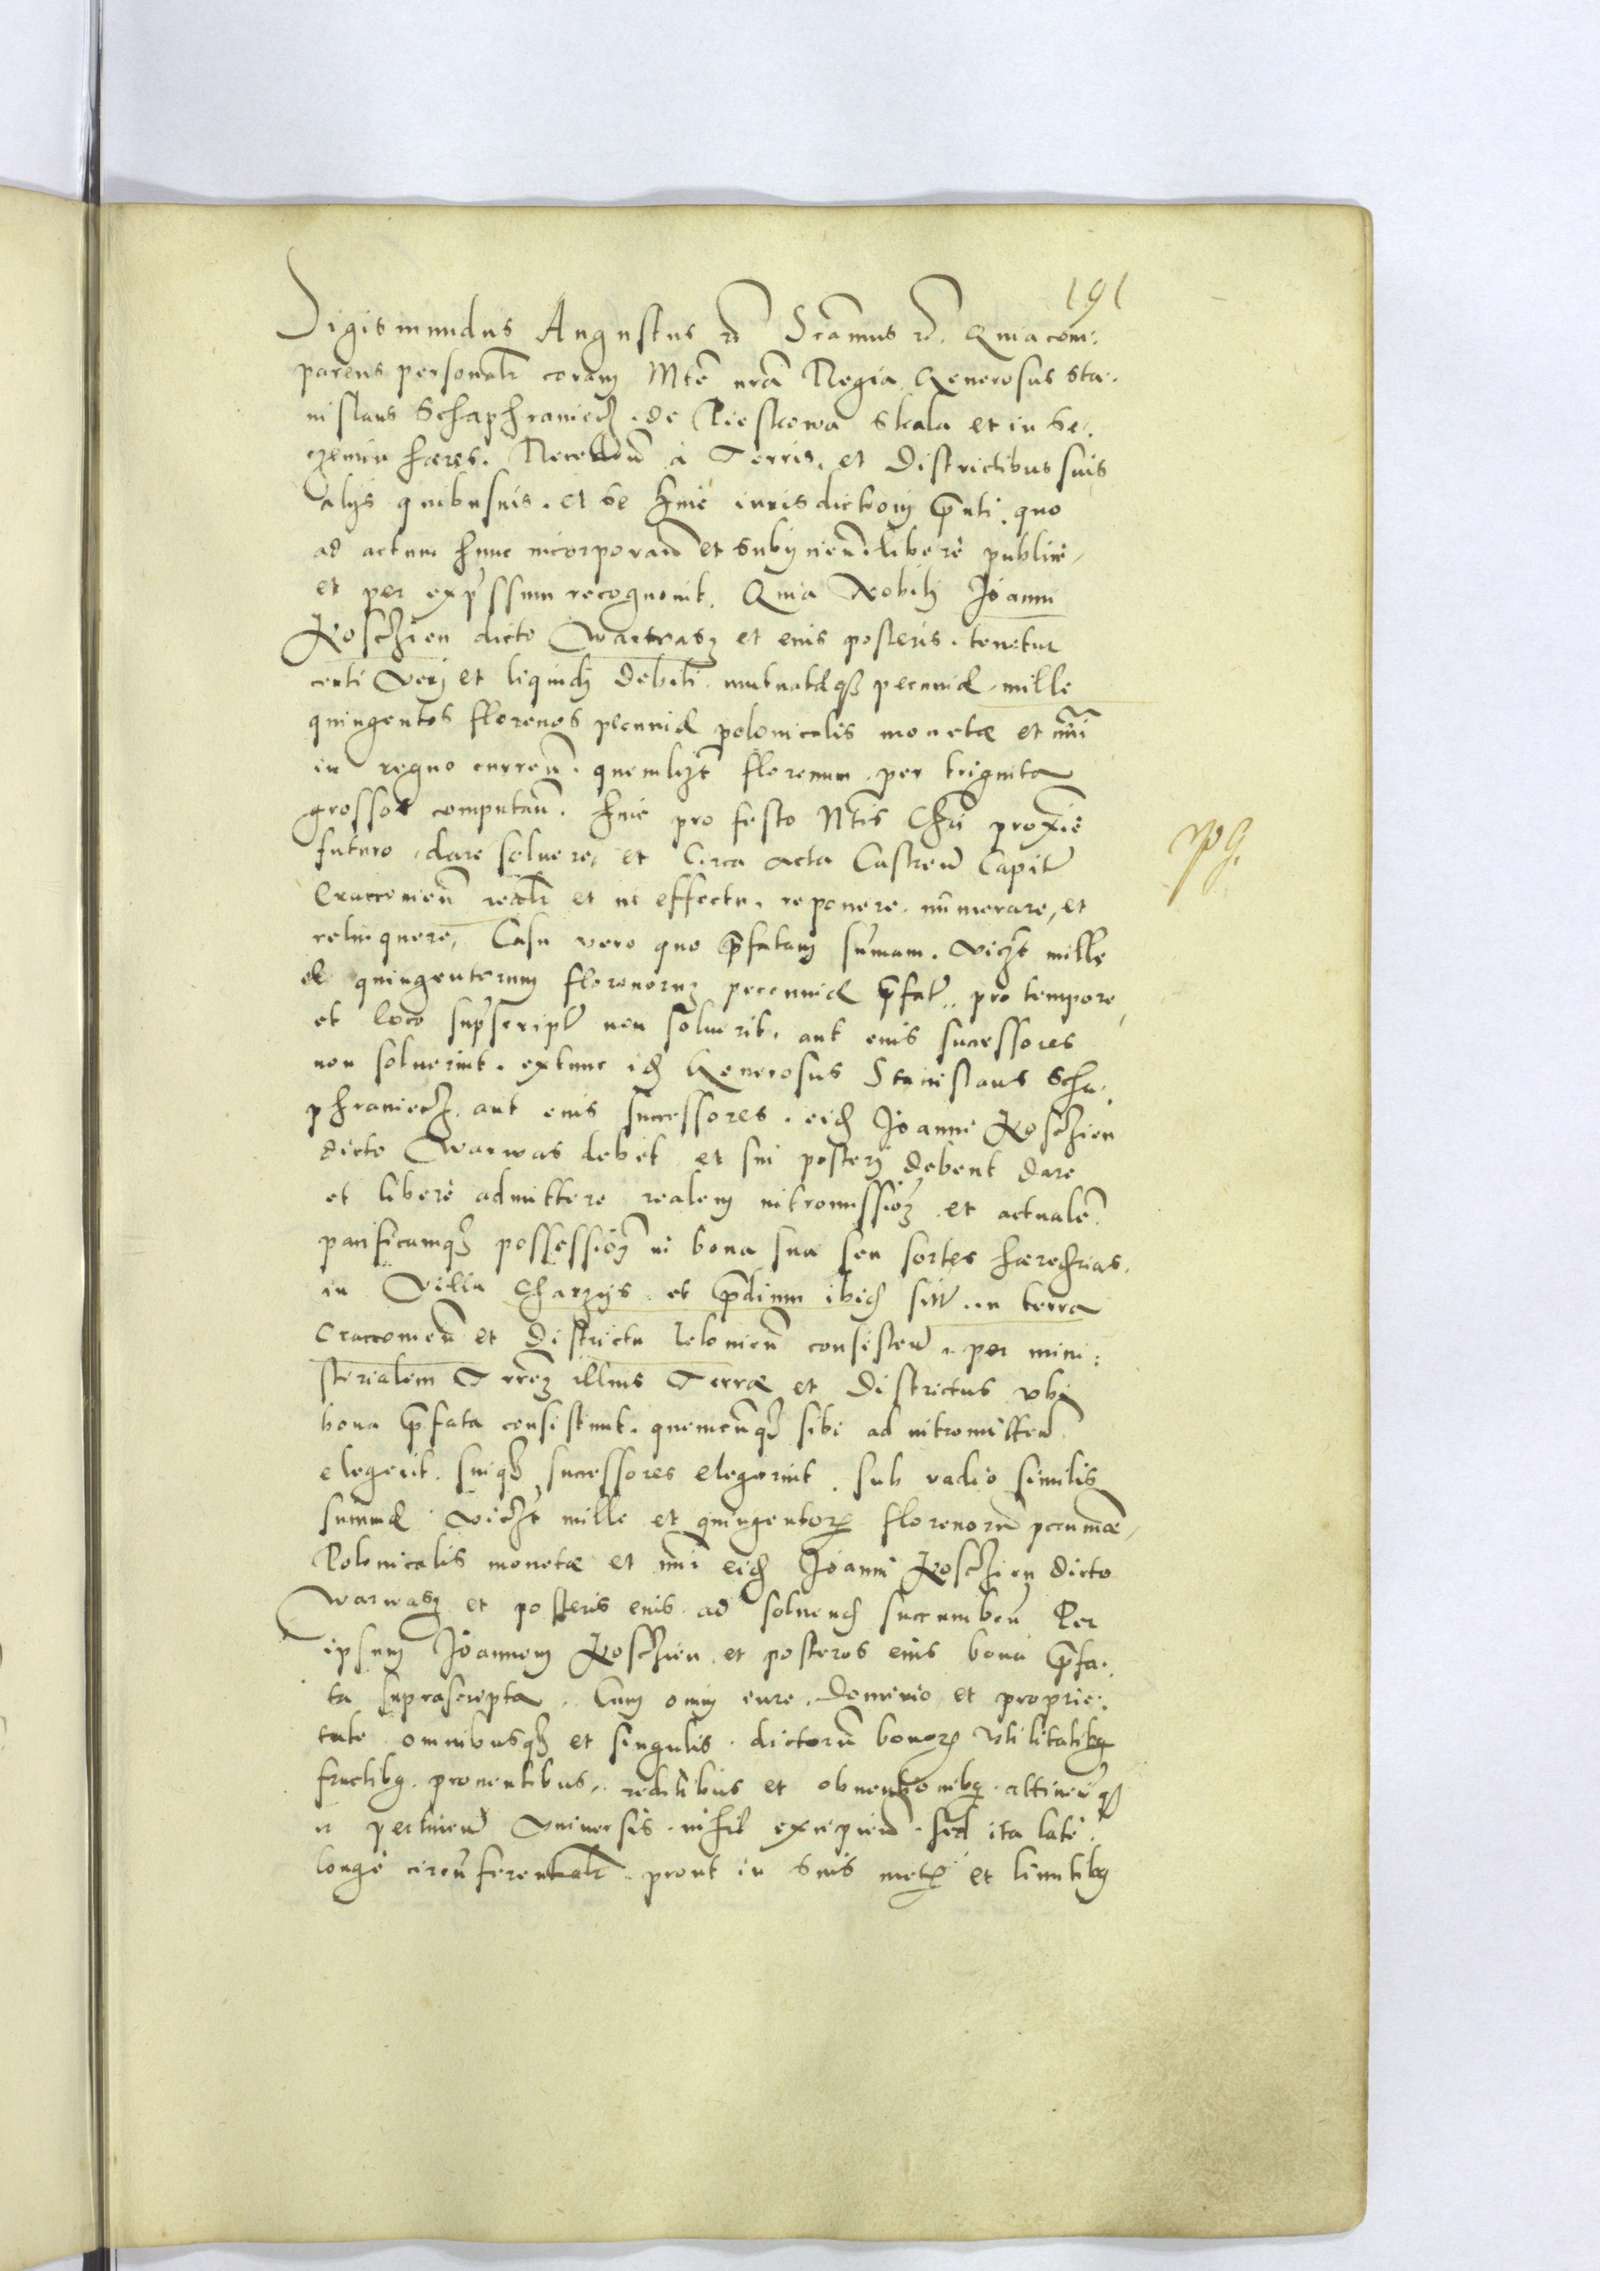 191
Sigismundus Augustus rc̃ Scamus rc̃. Quia com:
parens personalr̃ coram Mte nrã Regia Generosus Sta:
nislaus Schaphraniecz de Pieskowa Skala et in Se:
czemin hæres. Receden̄ à Terris, et Districtibus suis
alijs quibusuis. et se huic iurisdictioni pñti quo
ad actum hunc incorporan̄ et subijcien̄. liberè publicè
et per expressum recognouit. Quia Nobili Joanni
Koschien dicto Warwasz et eius posteris. tenetur
certi veri et liquidi debiti. mutuatæqȝ pecuniæ mille
quingentos florenos pecuniæ polonicalis monetæ et nrĩ
in regno curren̄. quemlibet florenum per triginta
grossos computan̄. huic pro festo Ntis Chri proximè
futuro dare soluere, et Circa acta Castren̄ Capitl̃
Cracouien̄ realr̃ et in effectu. reponere. numerare, et
relinquere, Casu vero quo p̃fatam sum̃am. vidzt mille
et quingentorum florenorum pecuniæ p̃fat̃. pro tempore
et loco suprascript̃ non soluerit, aut eius successores
non soluerint. extunc id Generosus Stanislaus Scha:
phraniecz aut eius successores. eidē Joanni Koschien
dicto Warwas debet et sui posteri debent dare
et liberè admittere realem intromissionē et actualē
pacificamqȝ possessionē in bona sua seu sortes hæreditarias.
in Villa Charzijs et p̃dium ibidē sitt̃ in terra
Cracouien̄ et Districtu Lelouien̄ consisten̄. per mini:
sterialem Terrēm illius Terræ et Districtus vbi
bona p̃fata consistunt. quemcunqȝ sibi ad intromitten̄
elegerit. suiqȝ successores elegerint. sub vadio similis
summæ vidzt mille et quingentorum florenorũ pecuniæ
Polonicalis monetæ et nrĩ eidē Joanni Koschien dicto
Warwasz et posteris eius ad soluend succumben̄ Per
ipsum Joannem Koschien et posteros eius bona p̃fa:
ta suprascripta. Cum omni iure Dominio et proprie:
tate omnibusqȝ et singulis dictorũ bonorum vtilitatibȝ
fructibȝ. prouentibus. reditibus et obuentionibȝ attinen̄qȝ
et pertinen̄ Vniuersis nihil excipien̄. sed ita latè.
longè circũferentialr̃ prout in suis metis et limitibȝ